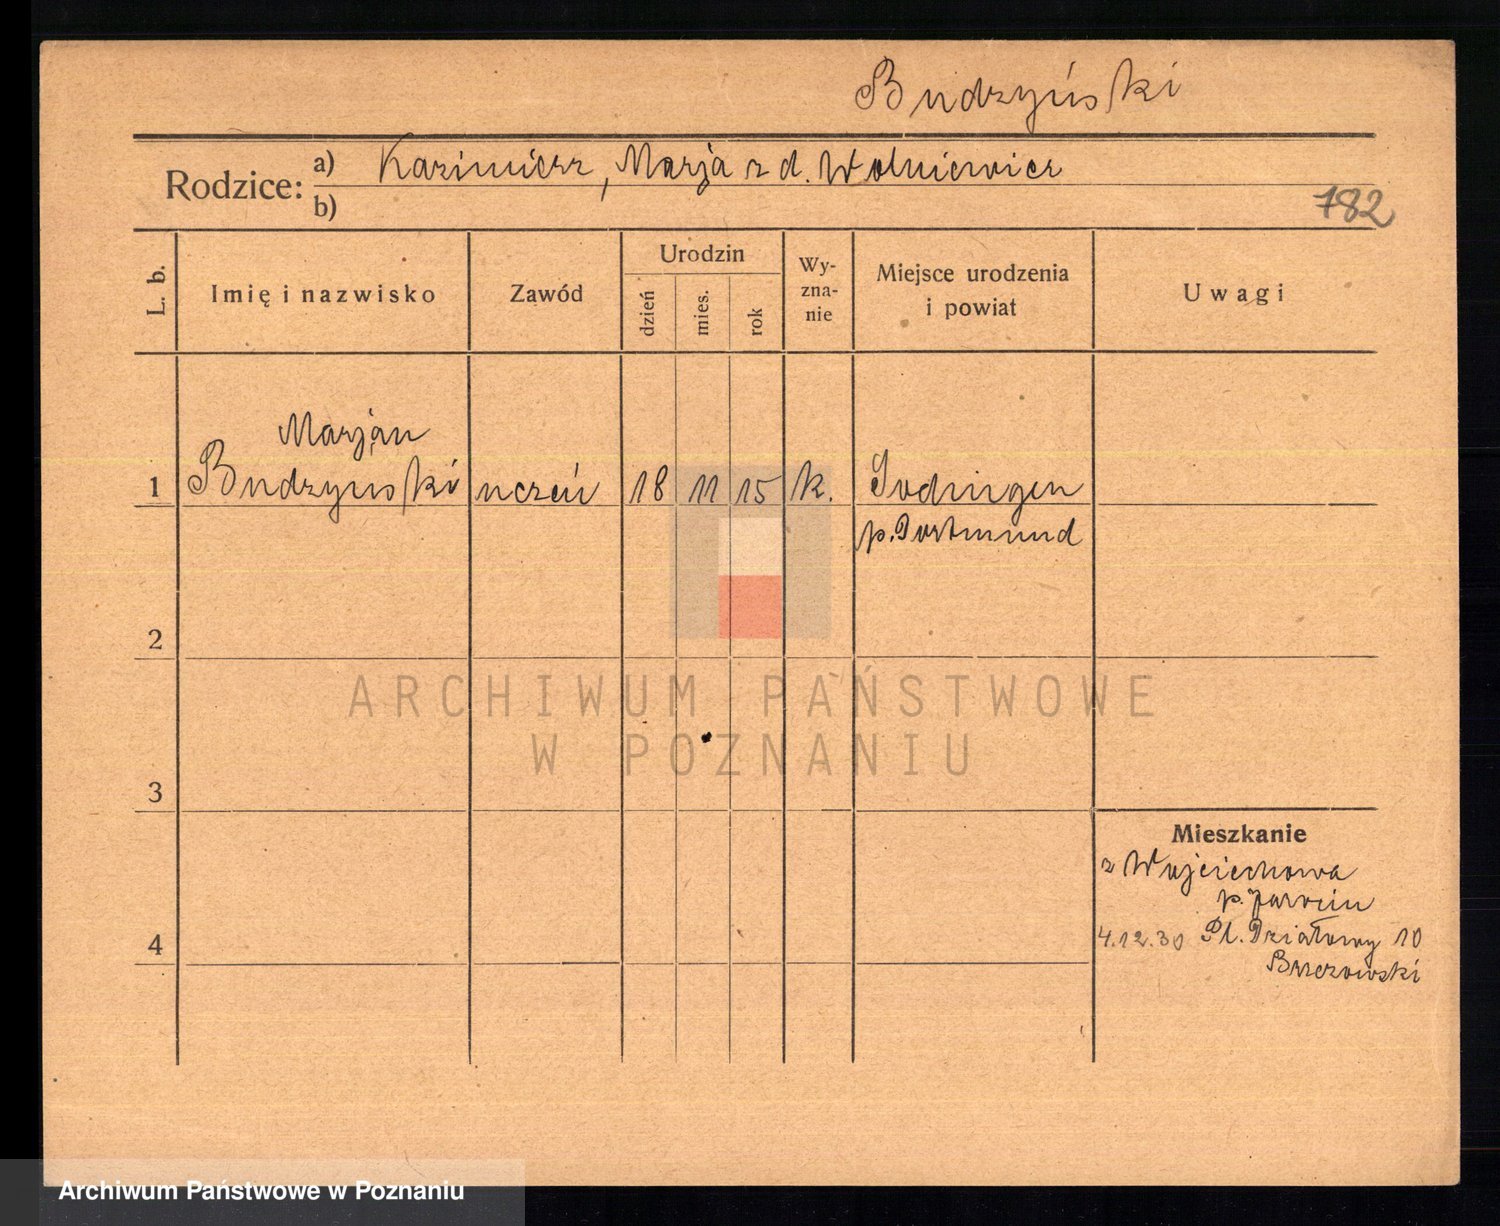 Budzyński
Rodzice: a) Kazimierz, Marja z d. Wolniewicz
b)
782
L. b. Imię i nazwisko Zawód Urodzin dzień mies. rok Wyznanie Miejsce urodzenia i powiat Uwagi
Marjan
1 Budzyński uczeń 18 11 15 k. Sodingen
p. Dortmund
2
ARCHIWUM PAŃSTWOWE
W POZNANIU
3
Mieszkanie
z Wojciechowa
p. Jarocin
4
4.12.30 Pl. Działowy 10
Archiwum Państwowe w Poznaniu